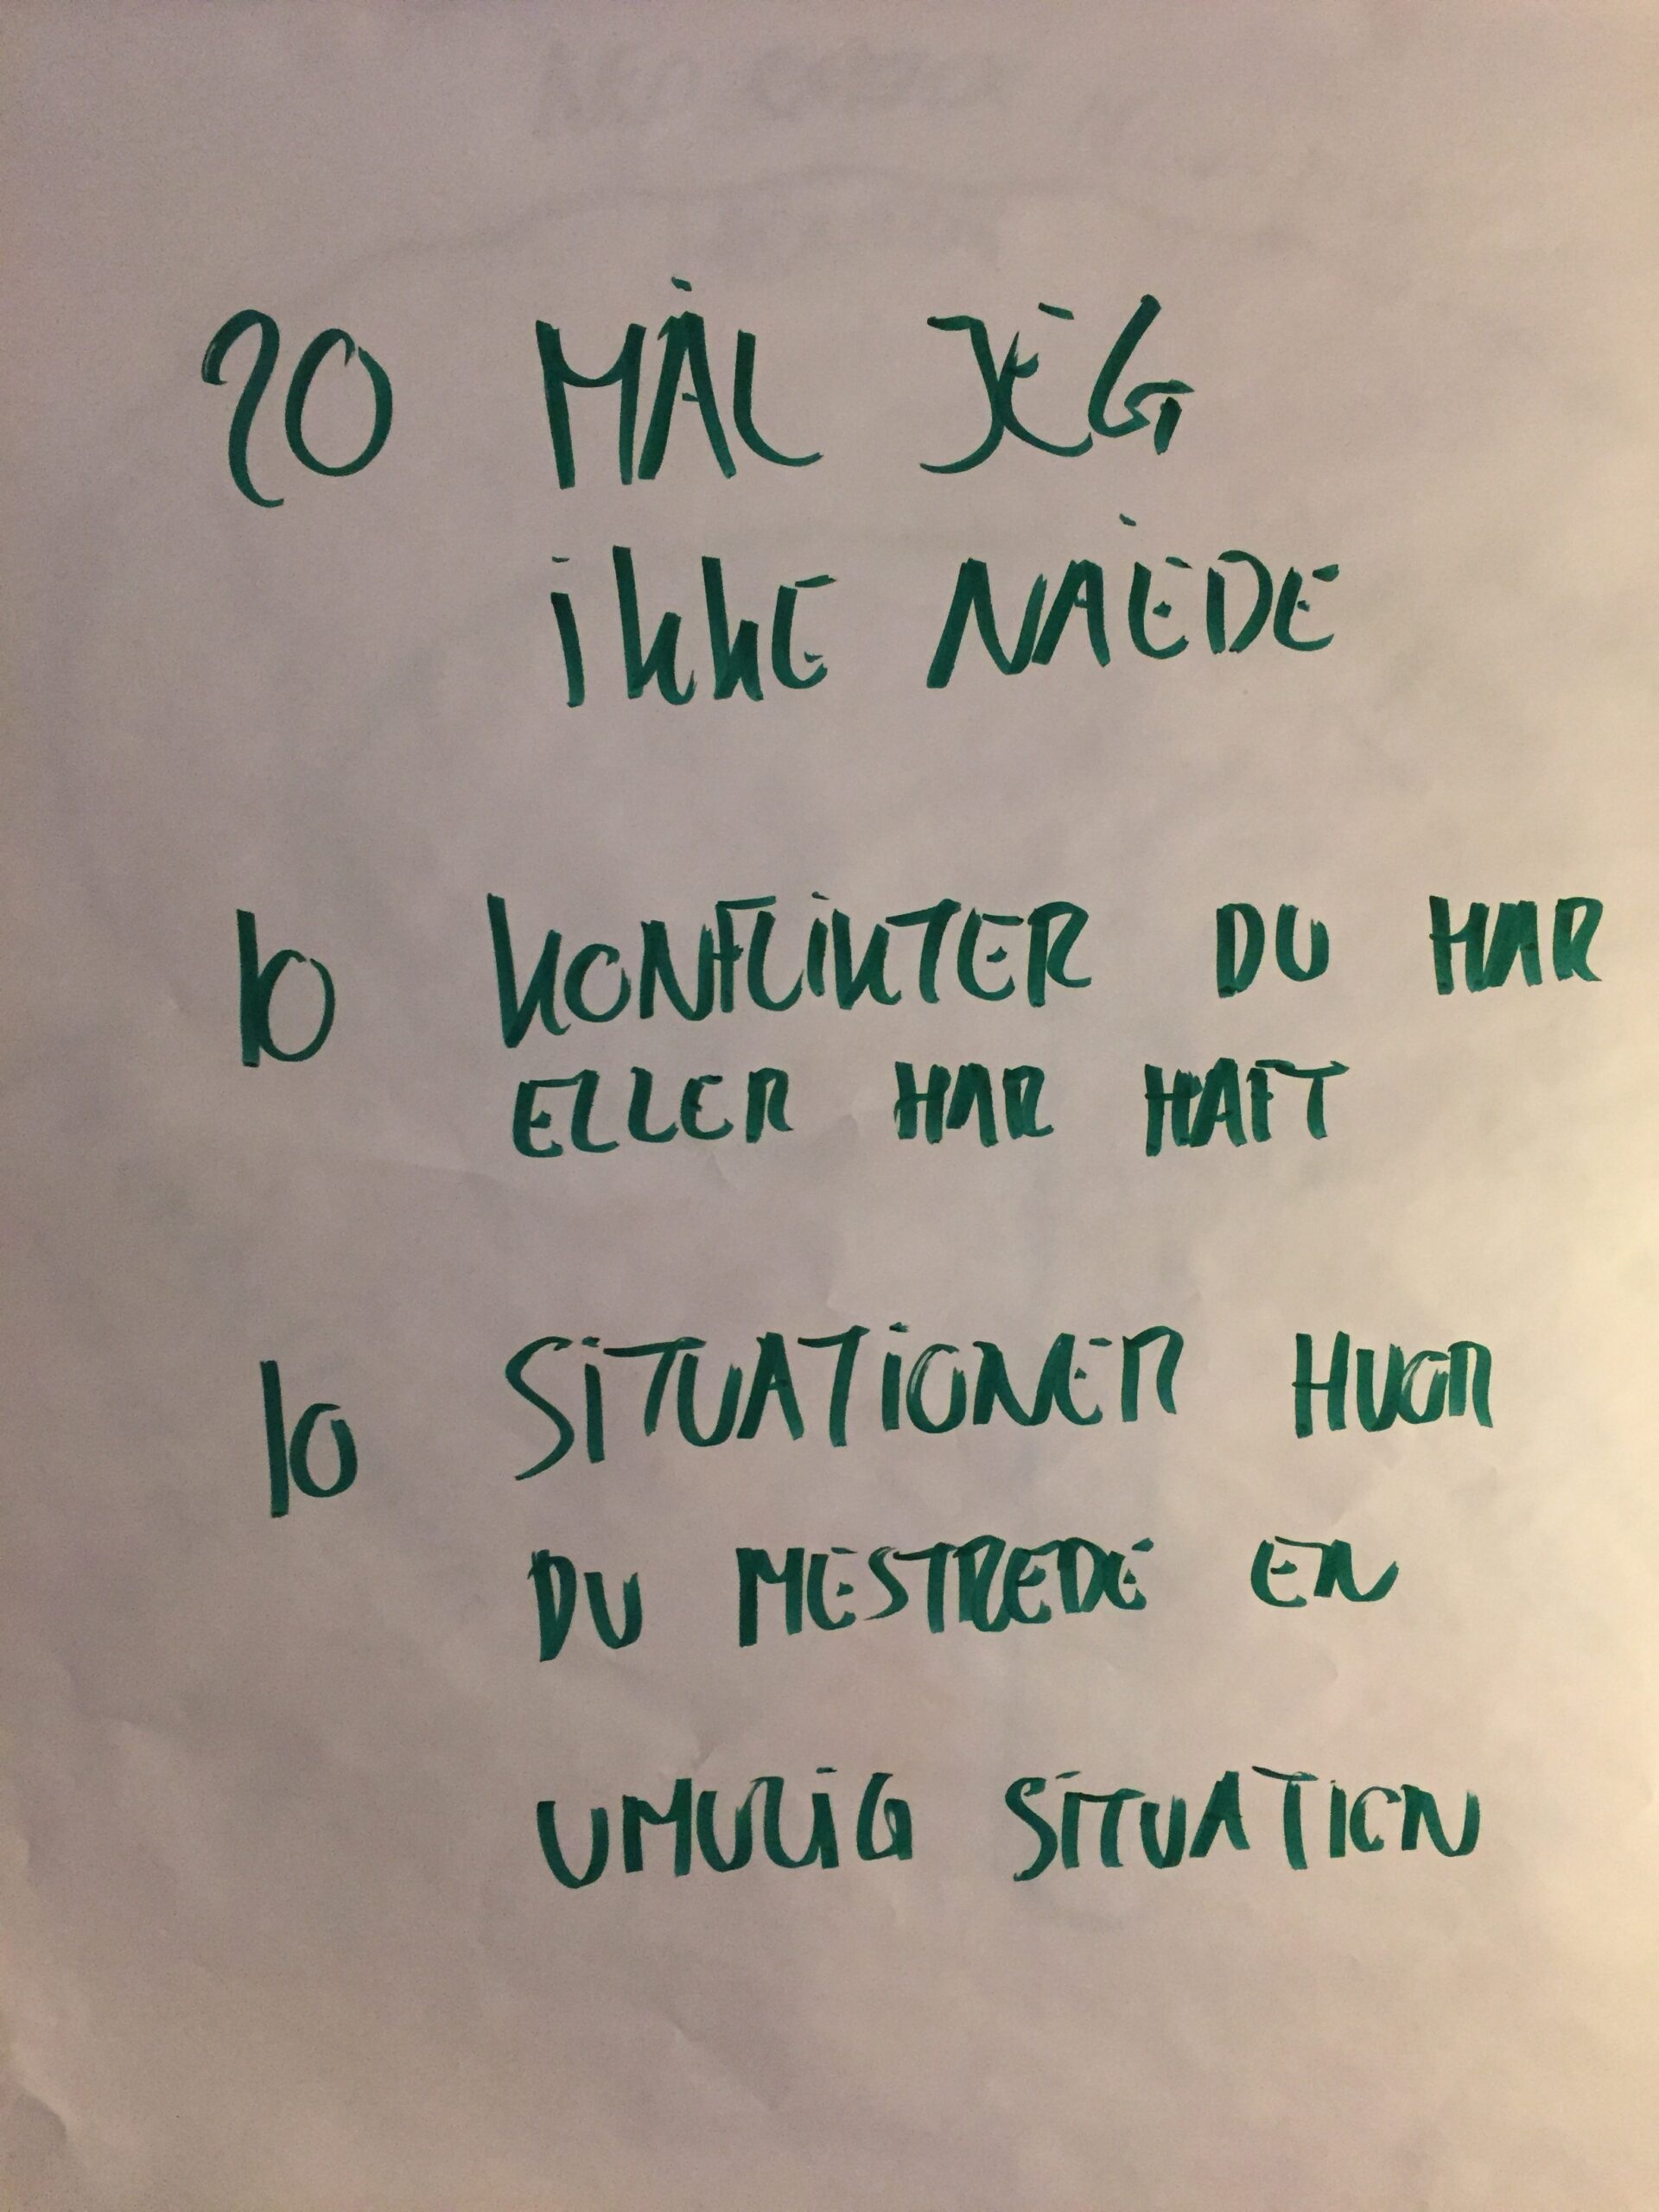 20 MÅL JEG
iKKE NÅEDE
10 KONFLiKTER DU HAR
ELLER HAR HAFT
10 SiTUATiONER HVOR
DU MESTREDE EN
UMULiG SiTUATION